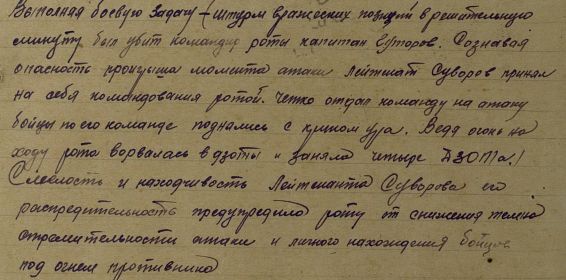 Выполняя боевую задачу – (штурм вражеских позиций в решательную
минуту был убит командир роты капитан Буторов. Сознавая
опасность проигрыша момента атаки Лейтенат Суворов принял
на себя командования ротой. Четко отдал команду на атаку
бойцы по его команде поднялись с криком ура. Ведя огонь на
ходу рота ворвалась в дзоты и заняла четыре ДЗОТа.!
Смелость и находчивость Лейтенанта Суворова его
распредительность предупредило роту от снижения темпа
стремительности атаки и личного нахождения бойцов
под огнем противника